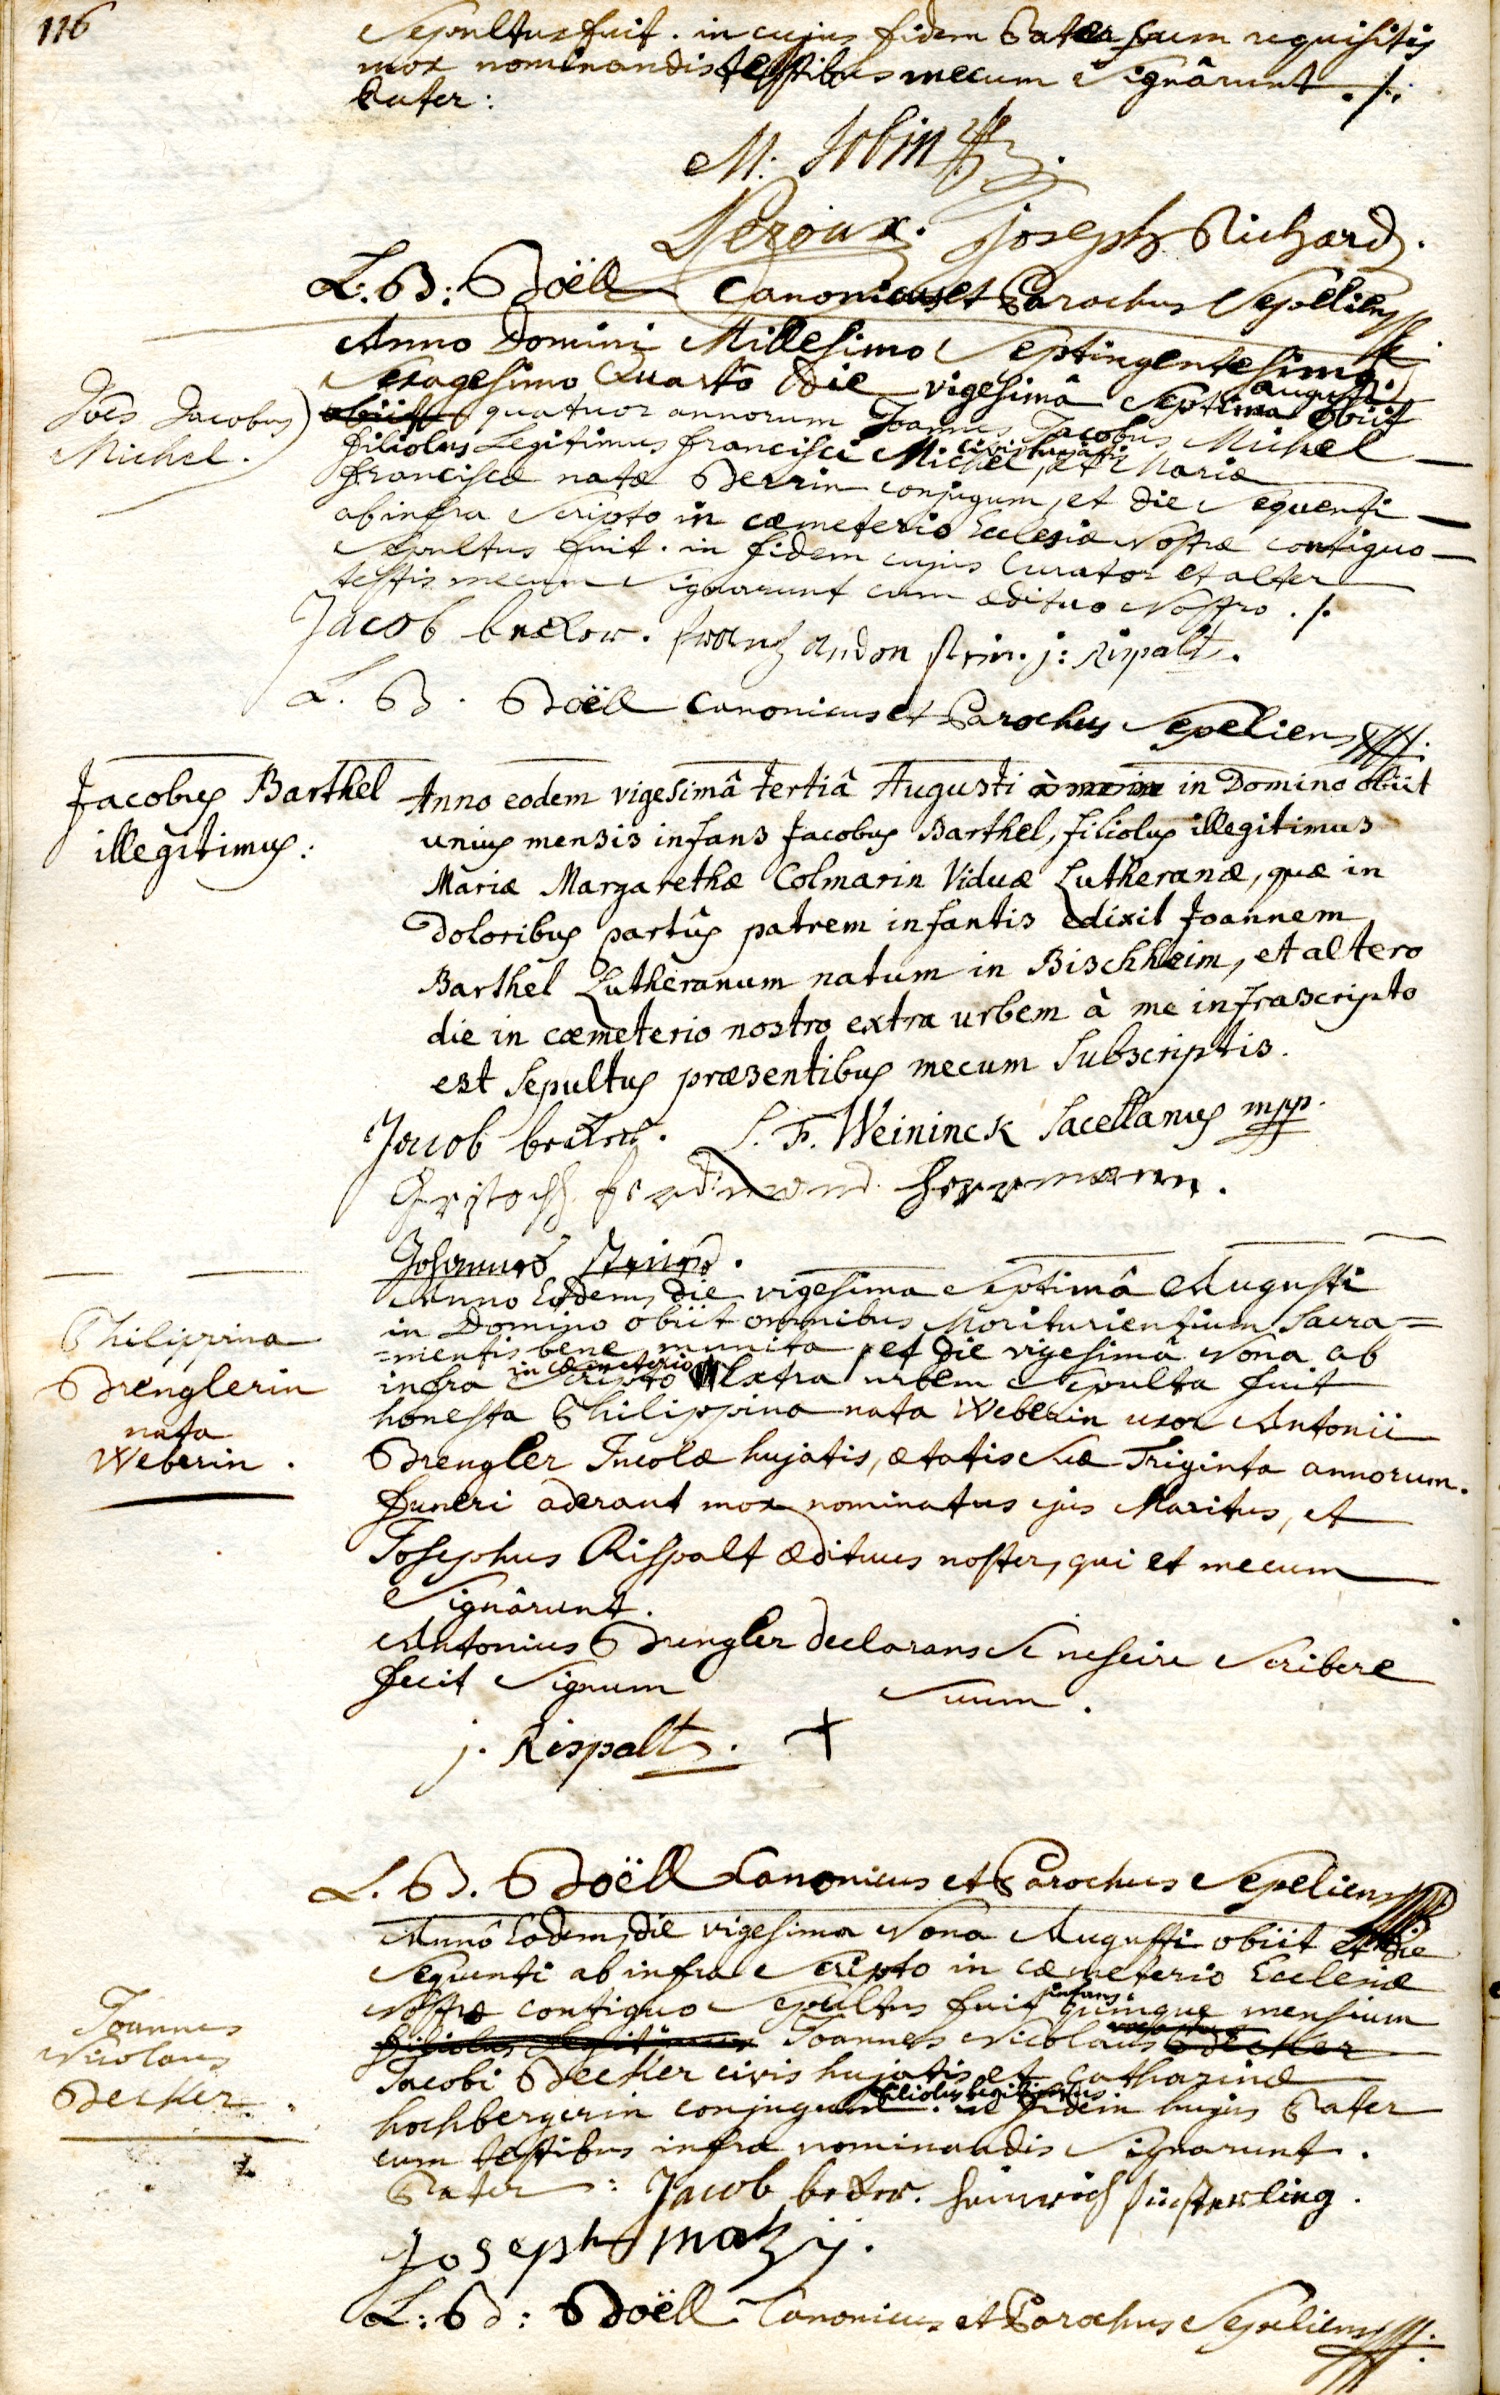 116
Sepultus fuit. in cujus fidem Pater cum requisitis
mox nominandis testibus mecum Signârunt ./.
Pater:
M: Jobin
Leroux. Joseph Richard.
L: B: Böell Canonicus et Parochus Sepeliens
Anno Domini Millesimo Septingentesimo
Sexagesimo Quarto Die vigesimâ Septima augusti obiit
Joës Jacobus
Michel.
obiit quatuor annorum Joannes Jacobus Michel
filiolus Legitimus francisci Michel civis hujatis, et Mariæ
franciscæ natæ Perrin conjugum, et die Sequenti
ab infra Scripto in cæmeterio Ecclesiæ Nostræ contiguo
Sepultus fuit. in fidem cujus Curator et alter
testis mecum Signarunt cum ædituo Nostro ./.
Jacob becker. frantz andon j: Rispalt.
L. B. Böell Canonicus et Parochus Sepeliens
Jacobus Barthel
illegitimus:
Anno eodem vigesimâ tertiâ Augusti in Domino obiit
unius mensis infans Jacobus Barthel, filiolus illegitimus
Mariæ Margarethæ Colmarin Viduæ Lutheranæ, quæ in
Doloribus partûs patrem infantis edixit Joannem
Barthel Lutheranum natum in Bischheim, et altero
die in cæmeterio nostro extra urbem à me infrascripto
est Sepultus præsentibus mecum Subscriptis.
Jacob becker. S. F. Weininck Sacellanus mpp.
Christoph ferdinand herrmann.
Johannes
Philippina
Brenglerin
nata
Weberin.
Anno Eodem, die vigesima Septimâ Augusti
in Domino obiit omnibus Moriturientium Sacra=
=mentis bene munita, et die vigesimâ Nona ab
infra Scripto in cæmeterio Extra urbem Sepulta fuit
honesta Philippina nata Weberin uxor Antonii
Brengler Incolæ hujatis, ætatis Suæ Triginta annorum.
funeri aderant mox nominatus ejus Maritus, et
Josephus Rispalt ædituus noster, qui et mecum
Signârunt.
Antonius Brengler declarans Se nescire Scribere
fecit Signum Suum.
j. Rispalt. +
L. B. Böell Canonicus et Parochus Sepeliens
Joannes
Nicolaus
Becker.
Annô Eodem, die vigesima Nona Augusti obiit et die
Sequenti ab infra Scripto in cæmeterio Ecclesiæ
Nostræ contiguo Sepultus fuit infans quinque mensium
filiolus Legitimus Joannes Nicolaus Becker
Jacobi Becker civis hujatis et Catharinæ
hochbergerin conjugum filiolus legitimus. in fidem hujus Pater
cum testibus infra nominandis Signarunt.
Pater: Jacob becker. heinrich finsterling.
Joseph matzÿ.
L: B: Böell Canonicus et Parochus Sepeliens